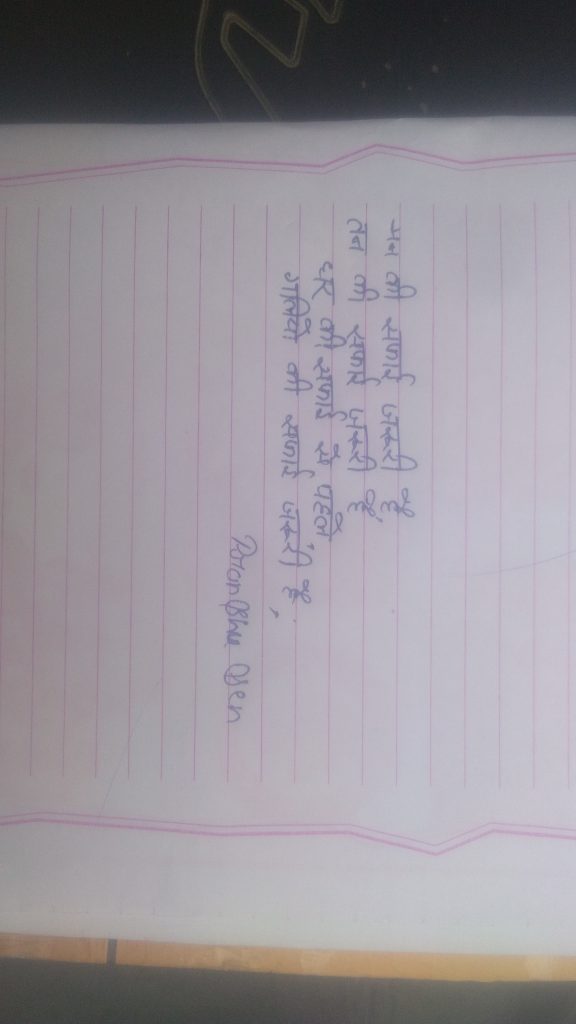 मन की सफाई जरूरी है
तन की सफाई जरूरी है,
घर की सफाई से पहले
गलियों की सफाई जरूरी है,
Sen